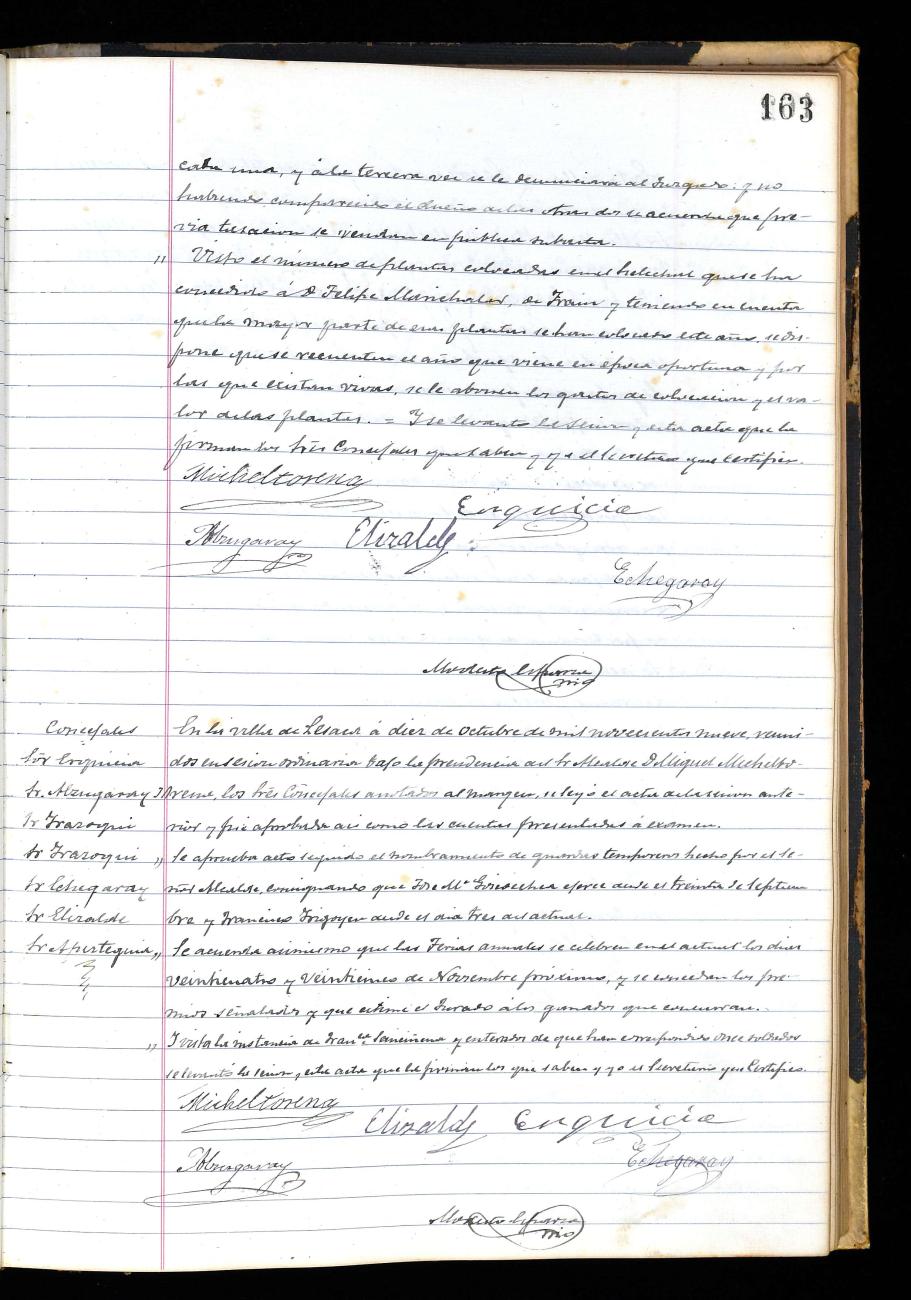 163
cada una, y á la tercera vez se le denunciará al Juzgado: y no
habiendo comparecido el dueño de las otras dos se acuerda que pre-
via tasacion se vendan en pública subasta.
" Visto el número de plantas colocadas en el helechal que se ha
concedido á D Felipe Marichalar, de Frain y teniendo en cuenta
que la mayor parte de esas plantas se han colocado este año, se dis-
pone que se recuenten el año que viene en época oportuna y por
las que existan vivas, se le abonen los gastos de colocacion y el va-
lor de las plantas. = Y se levantó la sesion y esta acta que la
firman los Srês Concejales que saben y yo el Secretario que certifico.
Micheltorena
Enquicia
Abzugaray Elizalde
Echegaray
Modesto Esparza
rrio
Concejales
Sor Enquicia
Sr. Alzugaray
Sr Irazoqui
Sr Irazoqui
Sr Echegaray
Sr Elizalde
Sr Apestegui
En la villa de Lesaca á diez de Octubre de mil novecientos nueve, reuni-
dos en sesion ordinaria bajo la presidencia del Sr Alcalde D Miguel Michelto-
rena, los Srês Concejales anotados al margen, se leyó el acta de la sesion ante-
rior y fué aprobada asi como las cuentas presentadas á examen.
" Se aprueba acto seguido el nombramiento de guardas temporeros hecho por el se-
ñor Alcalde, consignando que Jose Mª Goicoechea ejerce desde el treinta de Septiem
bre y Francisco Yrigoyen desde el dia tres del actual.
" Se acuerda asimismo que las Ferias anuales se celebren en el actual los dias
veinticuatro y veinticinco de Noviembre próximo, y se concedan los pre-
mios señalados y que estime el Jurado á los ganados que concurran.
" Y vista la instancia de Franca Sanzinena y enterados de que han correspondido once soldados
se levantó la sesion y esta acta que la firman los que saben y yo el Secretario que Certifico.
Micheltorena
Elizalde Enquicia
Abzugaray
Echegaray
Modesto Esparza
rrio